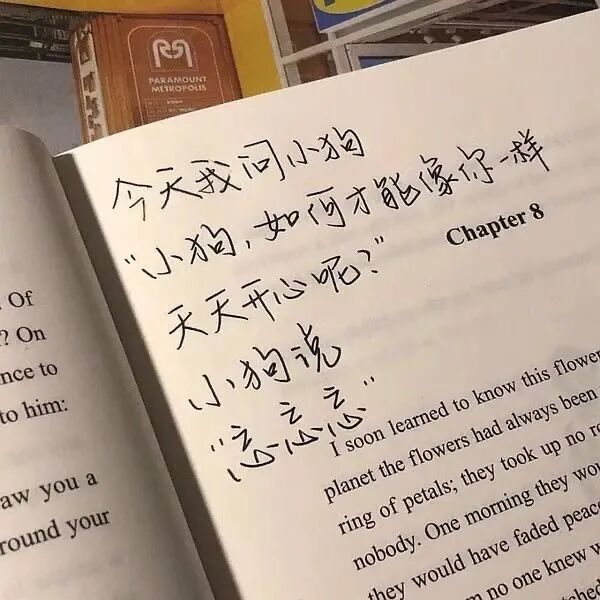 RM
PARAMOUNT
METROPOLIS
今天我问小狗
"小狗,如何才能像你一样
天天开心呢?"
小狗说
"忘忘忘"
Chapter 8
I soon learned to know this flower
planet the flowers had always been
ring of petals; they took up no
nobody. One morning they wou
they would have faded peac
no one knew w
Of
? On
nce to
to him:
aw you a
round your